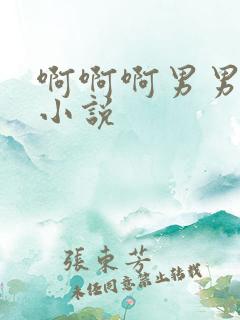 啊啊啊男男
小说
張東芳
未经同意禁止转载